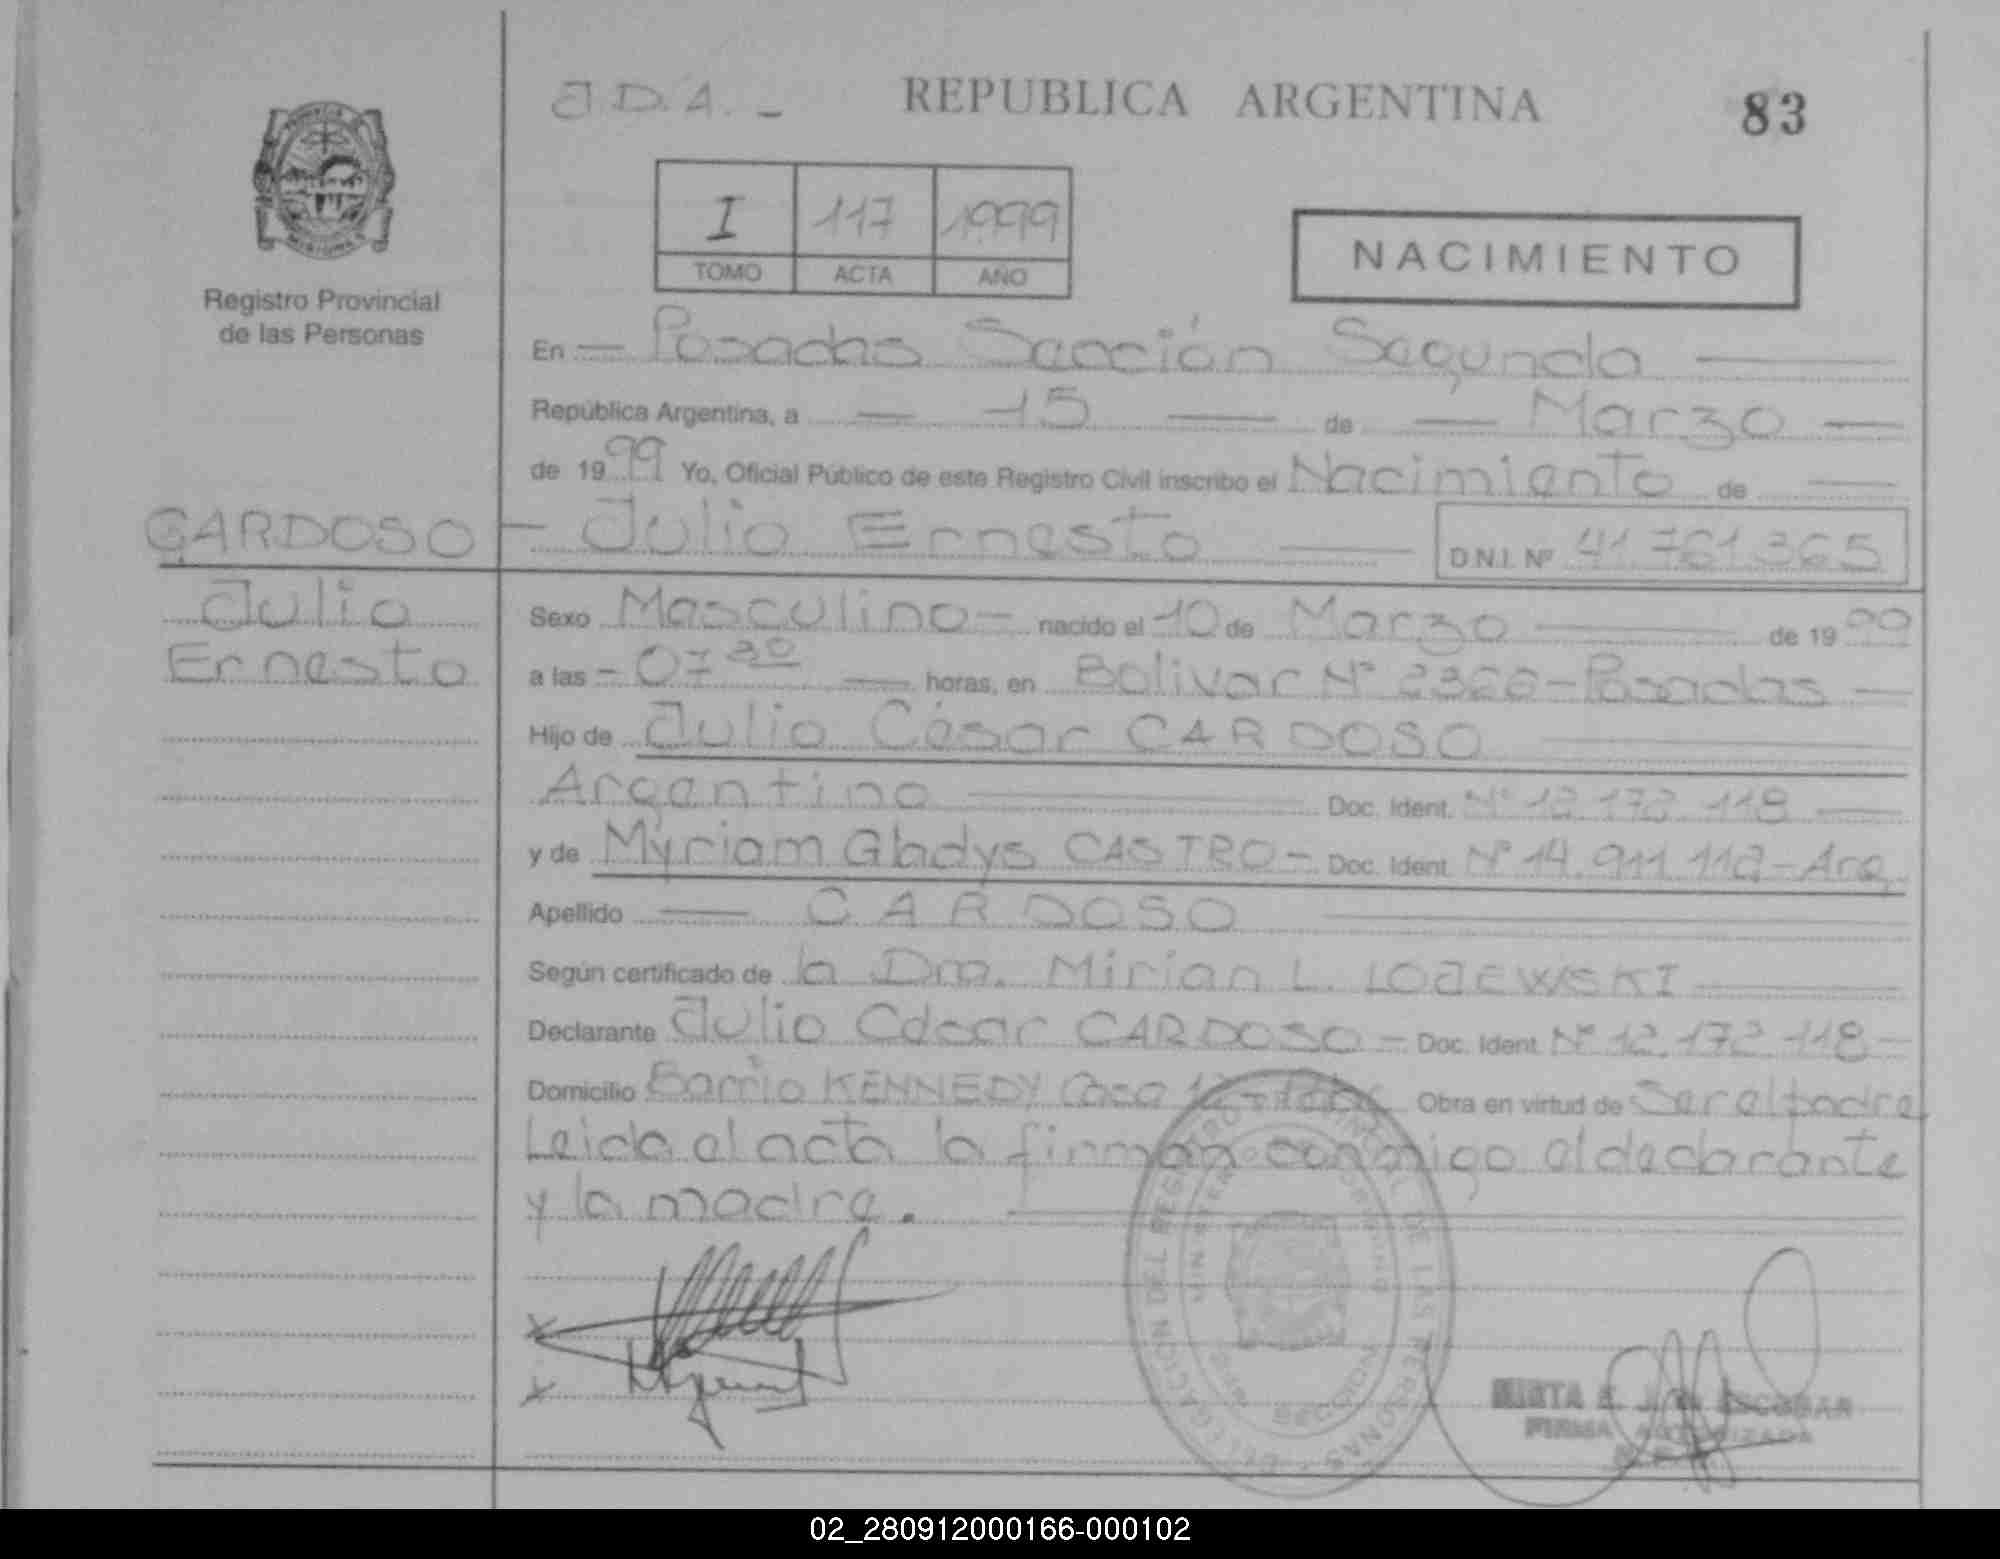 J.D.A. - REPUBLICA ARGENTINA 83
I 117 1999
TOMO ACTA AÑO
NACIMIENTO
Registro Provincial
de las Personas
En — Posadas Sección Segunda —
República Argentina, a — 15 — de — Marzo —
de 1999 Yo, Oficial Público de este Registro Civil inscribo el Nacimiento de —
CARDOSO — Julio Ernesto — D.N.I. Nº 41.761.365
Julio
Ernesto
Sexo Masculino — nacido el 10 de Marzo — de 1999
a las — 07 30 — horas, en Bolivar Nº 2366 - Posadas —
Hijo de Julio César CARDOSO
Argentino — Doc. Ident. Nº 12.172.118 —
y de Myriam Gladys CASTRO — Doc. Ident. Nº 14.911.112 - Arg.
Apellido — CARDOSO
Según certificado de la Dra. Mirian L. LOJEWSKI —
Declarante Julio César CARDOSO — Doc. Ident. Nº 12.172.118 —
Domicilio Barrio KENNEDY Casa Obra en virtud de Ser el padre
Leida el acta la firman conmigo el declarante
y la madre.
x
x
DELEGACION DEL REGISTRO PROVINCIAL DE LAS PERSONAS
MINISTERIO GOBIERNO
MIRTA E. ESCOBAR
FIRMA AUTORIZADA
02_280912000166-000102